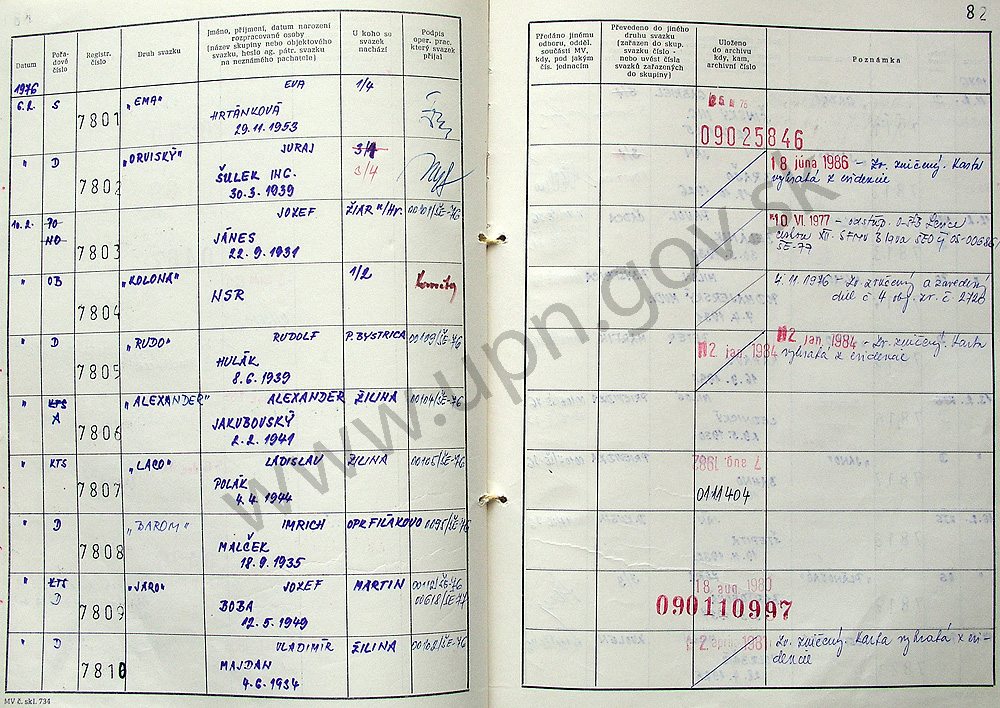 82
Datum
Pořa-
dové
číslo
Registr.
číslo
Druh svazku
Jméno, příjmení, datum narození
rozpracované osoby
(název skupiny nebo objektového
svazku, heslo ag. pátr. svazku
na neznámého pachatele)
U koho se
svazek
nachází
Podpis
oper. prac.
který svazek
přijal
Předáno jinému
odboru, odděl.
součásti MV,
kdy, pod jakým
čís. jednacím
Převedeno do jiného
druhu svazku
(zařazen do skup.
svazku číslo -
nebo uvést čísla
svazků zařazených
do skupiny)
Uloženo
do archívu
kdy, kam,
archivní číslo
Poznámka
1976
6.2. S 7801 „EMA" EVA 1/4
HRTÁNKOVÁ
29.11.1953
09025846
" D 7802 „ORVISKÝ" JURAJ
3/4
ŠULEK ING.
30.3.1939
18. júna 1986 - Zv. zničený. Karta
vybratá z evidencie
10.2. 7803 JOZEF ŽIAR n/Hr. 00101/ŠE-76
JÁNES
22.9.1931
10. VI. 1977
" OB 7804 „KOLONA" 1/2
NSR
4. 11. 1976 - Zv. zrušený a zavedený
diel č. 4 obj. zv. č. 2720
" D 7805 „RUDO" RUDOLF P. BYSTRICA 00109/ŠE-76
HULÁK
8.6.1939
2. jan. 1984
2. jan. 1984 - Zv. zničený. Karta
vybratá z evidencie
" KTS 7806 „ALEXANDER" ALEXANDER ŽILINA 00104/ŠE-76
A
JAKUBOVSKÝ
2.2.1941
" KTS 7807 „LACO" LADISLAV ŽILINA 00105/ŠE-76
POLÁK
4.4.1944
7. aug. 1982
0111404
" D 7808 „BAROM" IMRICH OPK FIĽAKOVO 0095/ŠE-76
MALČEK
18.9.1935
" KTS 7809 „JARO" JOZEF MARTIN 00110/ŠE-76
D 00618/ŠE-77
BOBA
12.5.1949
18. aug. 1989
090110997
" D 7810 VLADIMÍR ŽILINA 00102/ŠE-76
MAJDAN
4.6.1934
Zv. zničený. Karta vybratá z evi-
dencie
MV č. skl. 734
www.upn.gov.sk